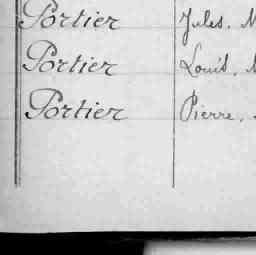 Portier Jules. M
Portier Louis. M
Portier Pierre.